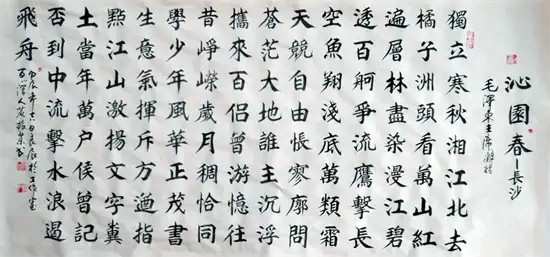 沁園春-長沙
毛澤東主席
獨立寒秋湘江北去
橘子洲頭看萬山紅
遍層林盡染漫江碧
透百舸爭流鷹擊長
空魚翔淺底萬類霜
天競自由悵寥廓問
蒼茫大地誰主沉浮
攜來百侶曾游憶往
昔崢嶸歲月稠恰同
學少年風華正茂書
生意氣揮斥方遒指
點江山激揚文字糞
土當年萬户侯曾記
否到中流擊水浪遏
飛舟